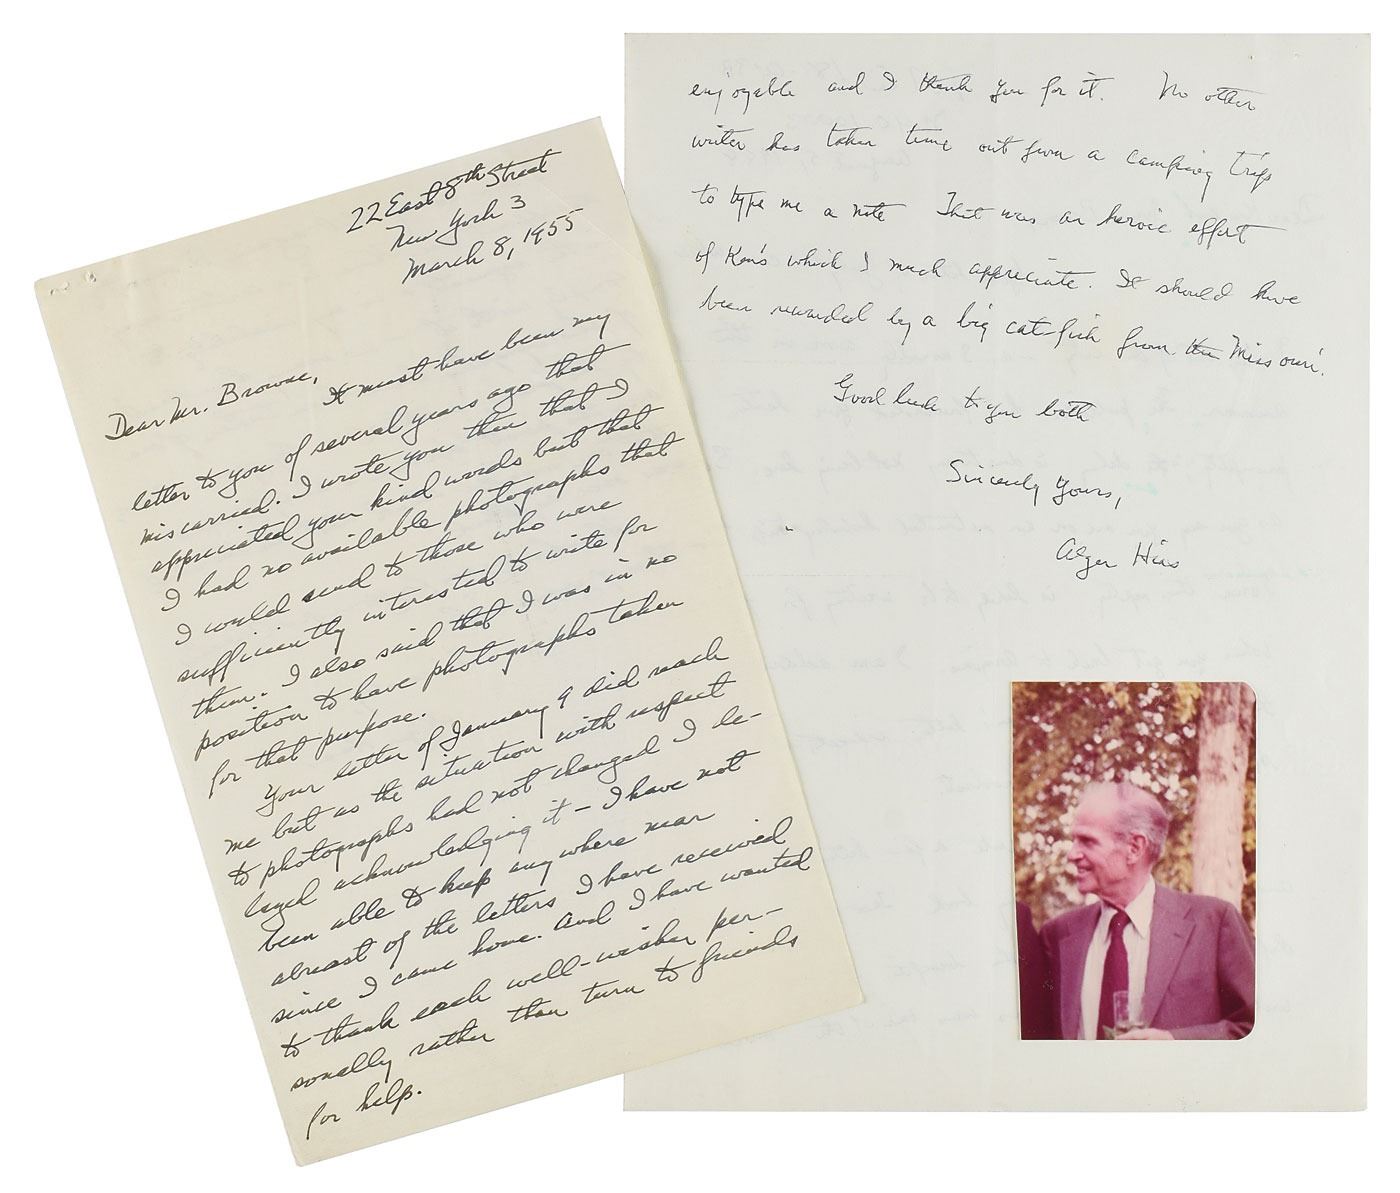 22 East 8th Street
New York 3
March 8, 1955
Dear Mr. Browne,
It must have been my
letter to you of several years ago that
miscarried. I wrote you then that I
appreciated your kind words but that
I had no available photographs that
I could send to those who were
sufficiently interested to write for
them. I also said that I was in no
position to have photographs taken
for that purpose.
Your letter of January 9 did reach
me but as the situation with respect
to photographs had not changed I de-
layed acknowledging it – I have not
been able to keep anywhere near
abreast of the letters I have received
since I came home. And I have wanted
to thank each well-wisher per-
sonally rather than turn to friends
for help.
enjoyable and I thank you for it. No other
writer has taken time out from a camping trip
to type me a note That was an heroic effort
of Ken's which I much appreciate. It should have
been rewarded by a big cat-fish from the Missouri.
Good luck to you both
Sincerely Yours,
Alger Hiss